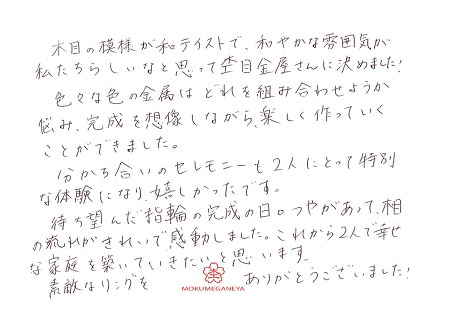 木目の模様が和テイストで、和やかな雰囲気が
私たちらしいなと思って杢目金屋さんに決めました!
色々な色の金属はどれを組み合わせようか
悩み、完成を想像しながら、楽しく作っていく
ことができました。
分かち合いのセレモニーも2人にとって特別
な体験になり、嬉しかったです。
待ち望んだ指輪の完成の日。つやがあって、相
の流れがきれいで感動しました。これから2人で幸せ
な家庭を築いていきたいと思います。
素敵なリングを ありがとうございました!
MOKUMEGANEYA